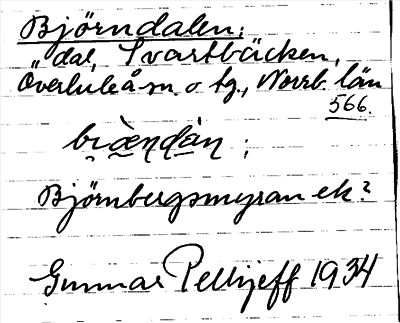 Björndalen:
dal, Svartbäcken,
Överluleå sn. o tg., Norrb. län
566.
Björnbergsmyran ek?
Gunnar Pellijeff 1934